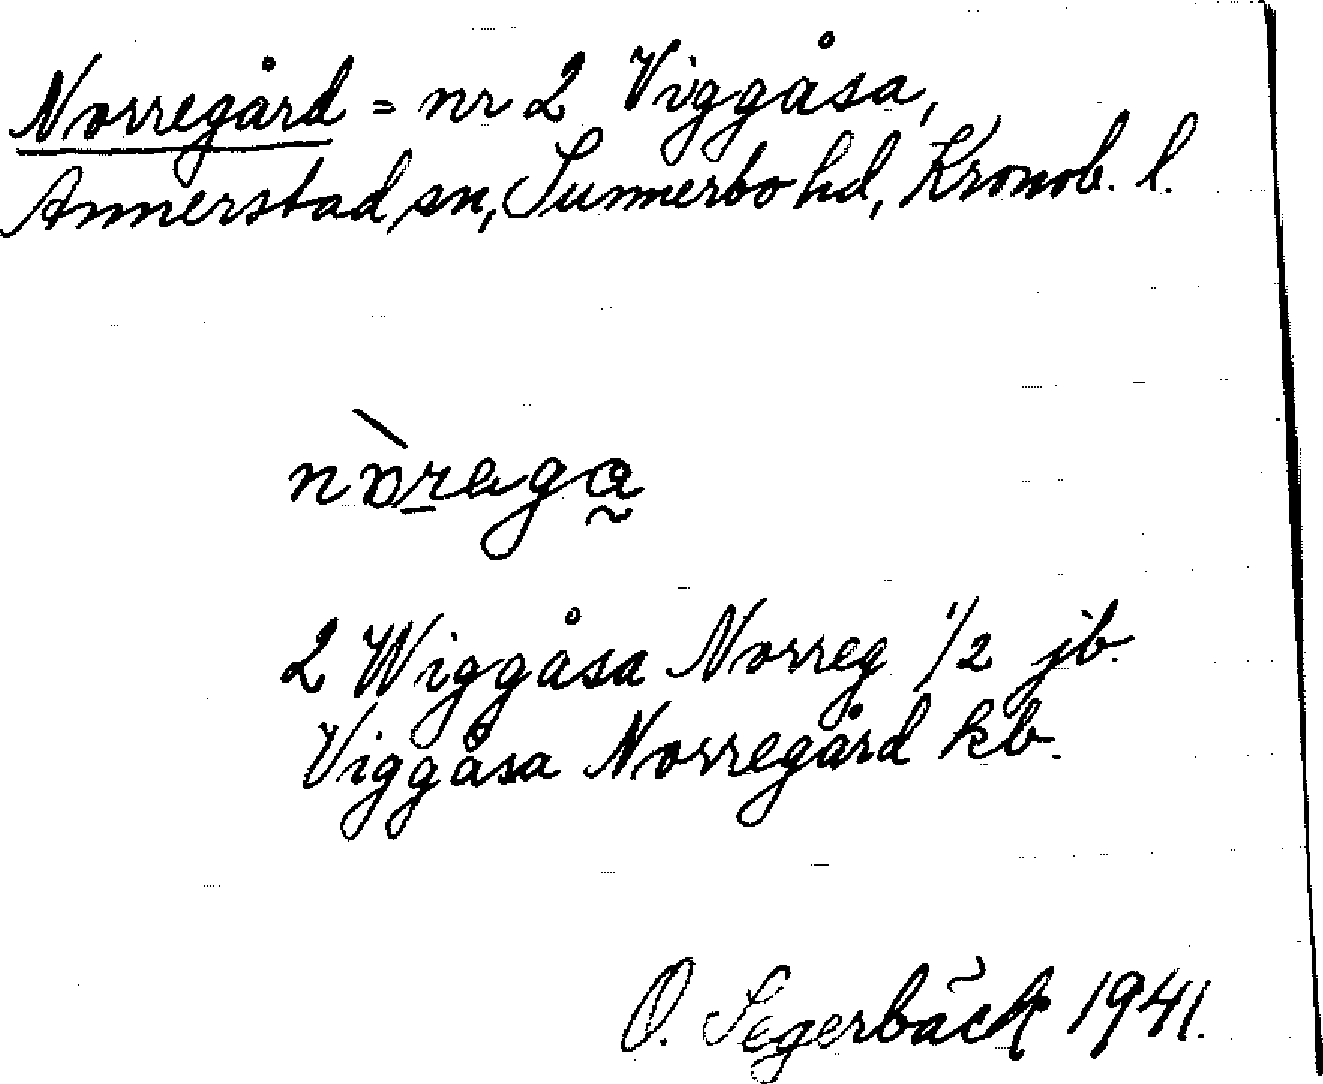 Norregård = nr 2 Viggåsa,
Annerstad sn, Sunnerbo hd, Kronob. l.
nòrega
2 Wiggåsa Norreg 1/2 jb.
Viggåsa Norregård kb.
O. Segerbäck 1941.